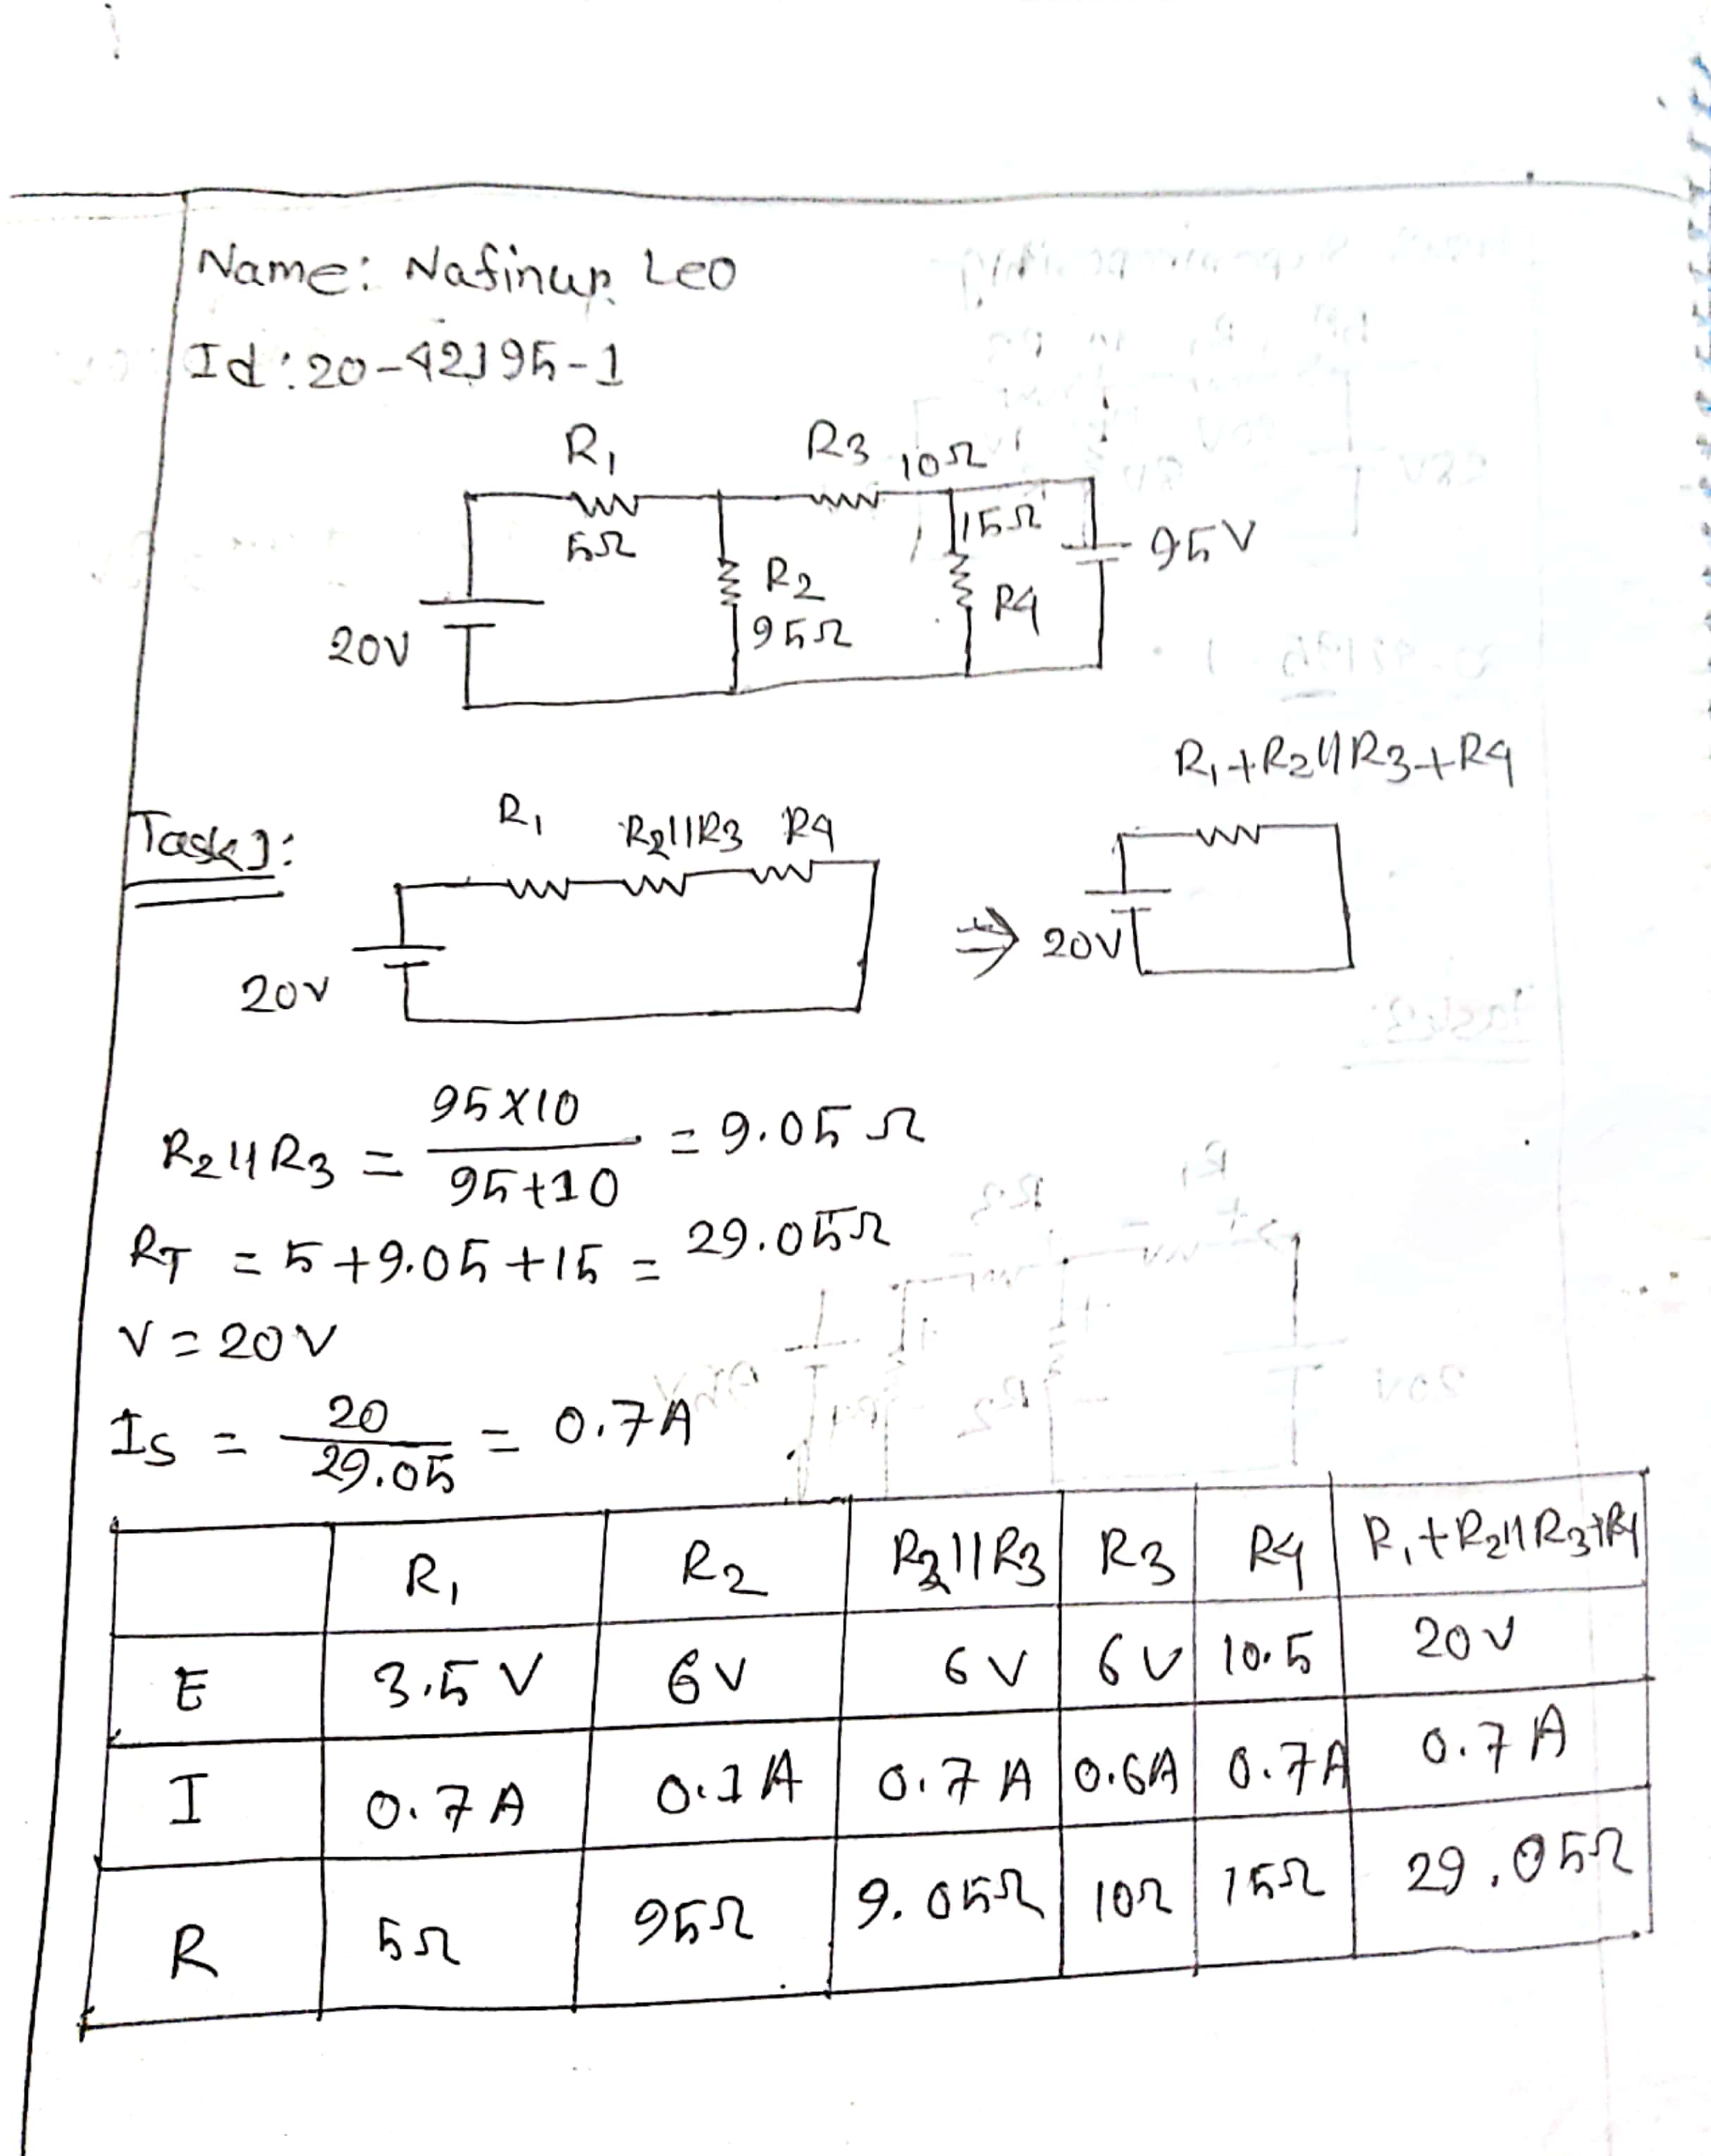 Name: Nafinur Leo
Id: 20-42195-1
R1
R3 10Ω
5Ω
15Ω
95V
R2
R4
20V
95Ω
R1+R2||R3+R4
Task1:
R1 R2||R3 R4
⇒ 20V
20V
R2||R3 = 95×10 / 95+10 = 9.05 Ω
RT = 5+9.05+15 = 29.05Ω
V = 20V
IS = 20 / 29.05 = 0.7A
R1 R2 R2||R3 R3 R4 R1+R2||R3+R4
E 3.5 V 6V 6V 6V 10.5 20V
I 0.7A 0.1A 0.7A 0.6A 0.7A 0.7A
R 5Ω 95Ω 9.05Ω 10Ω 15Ω 29.05Ω